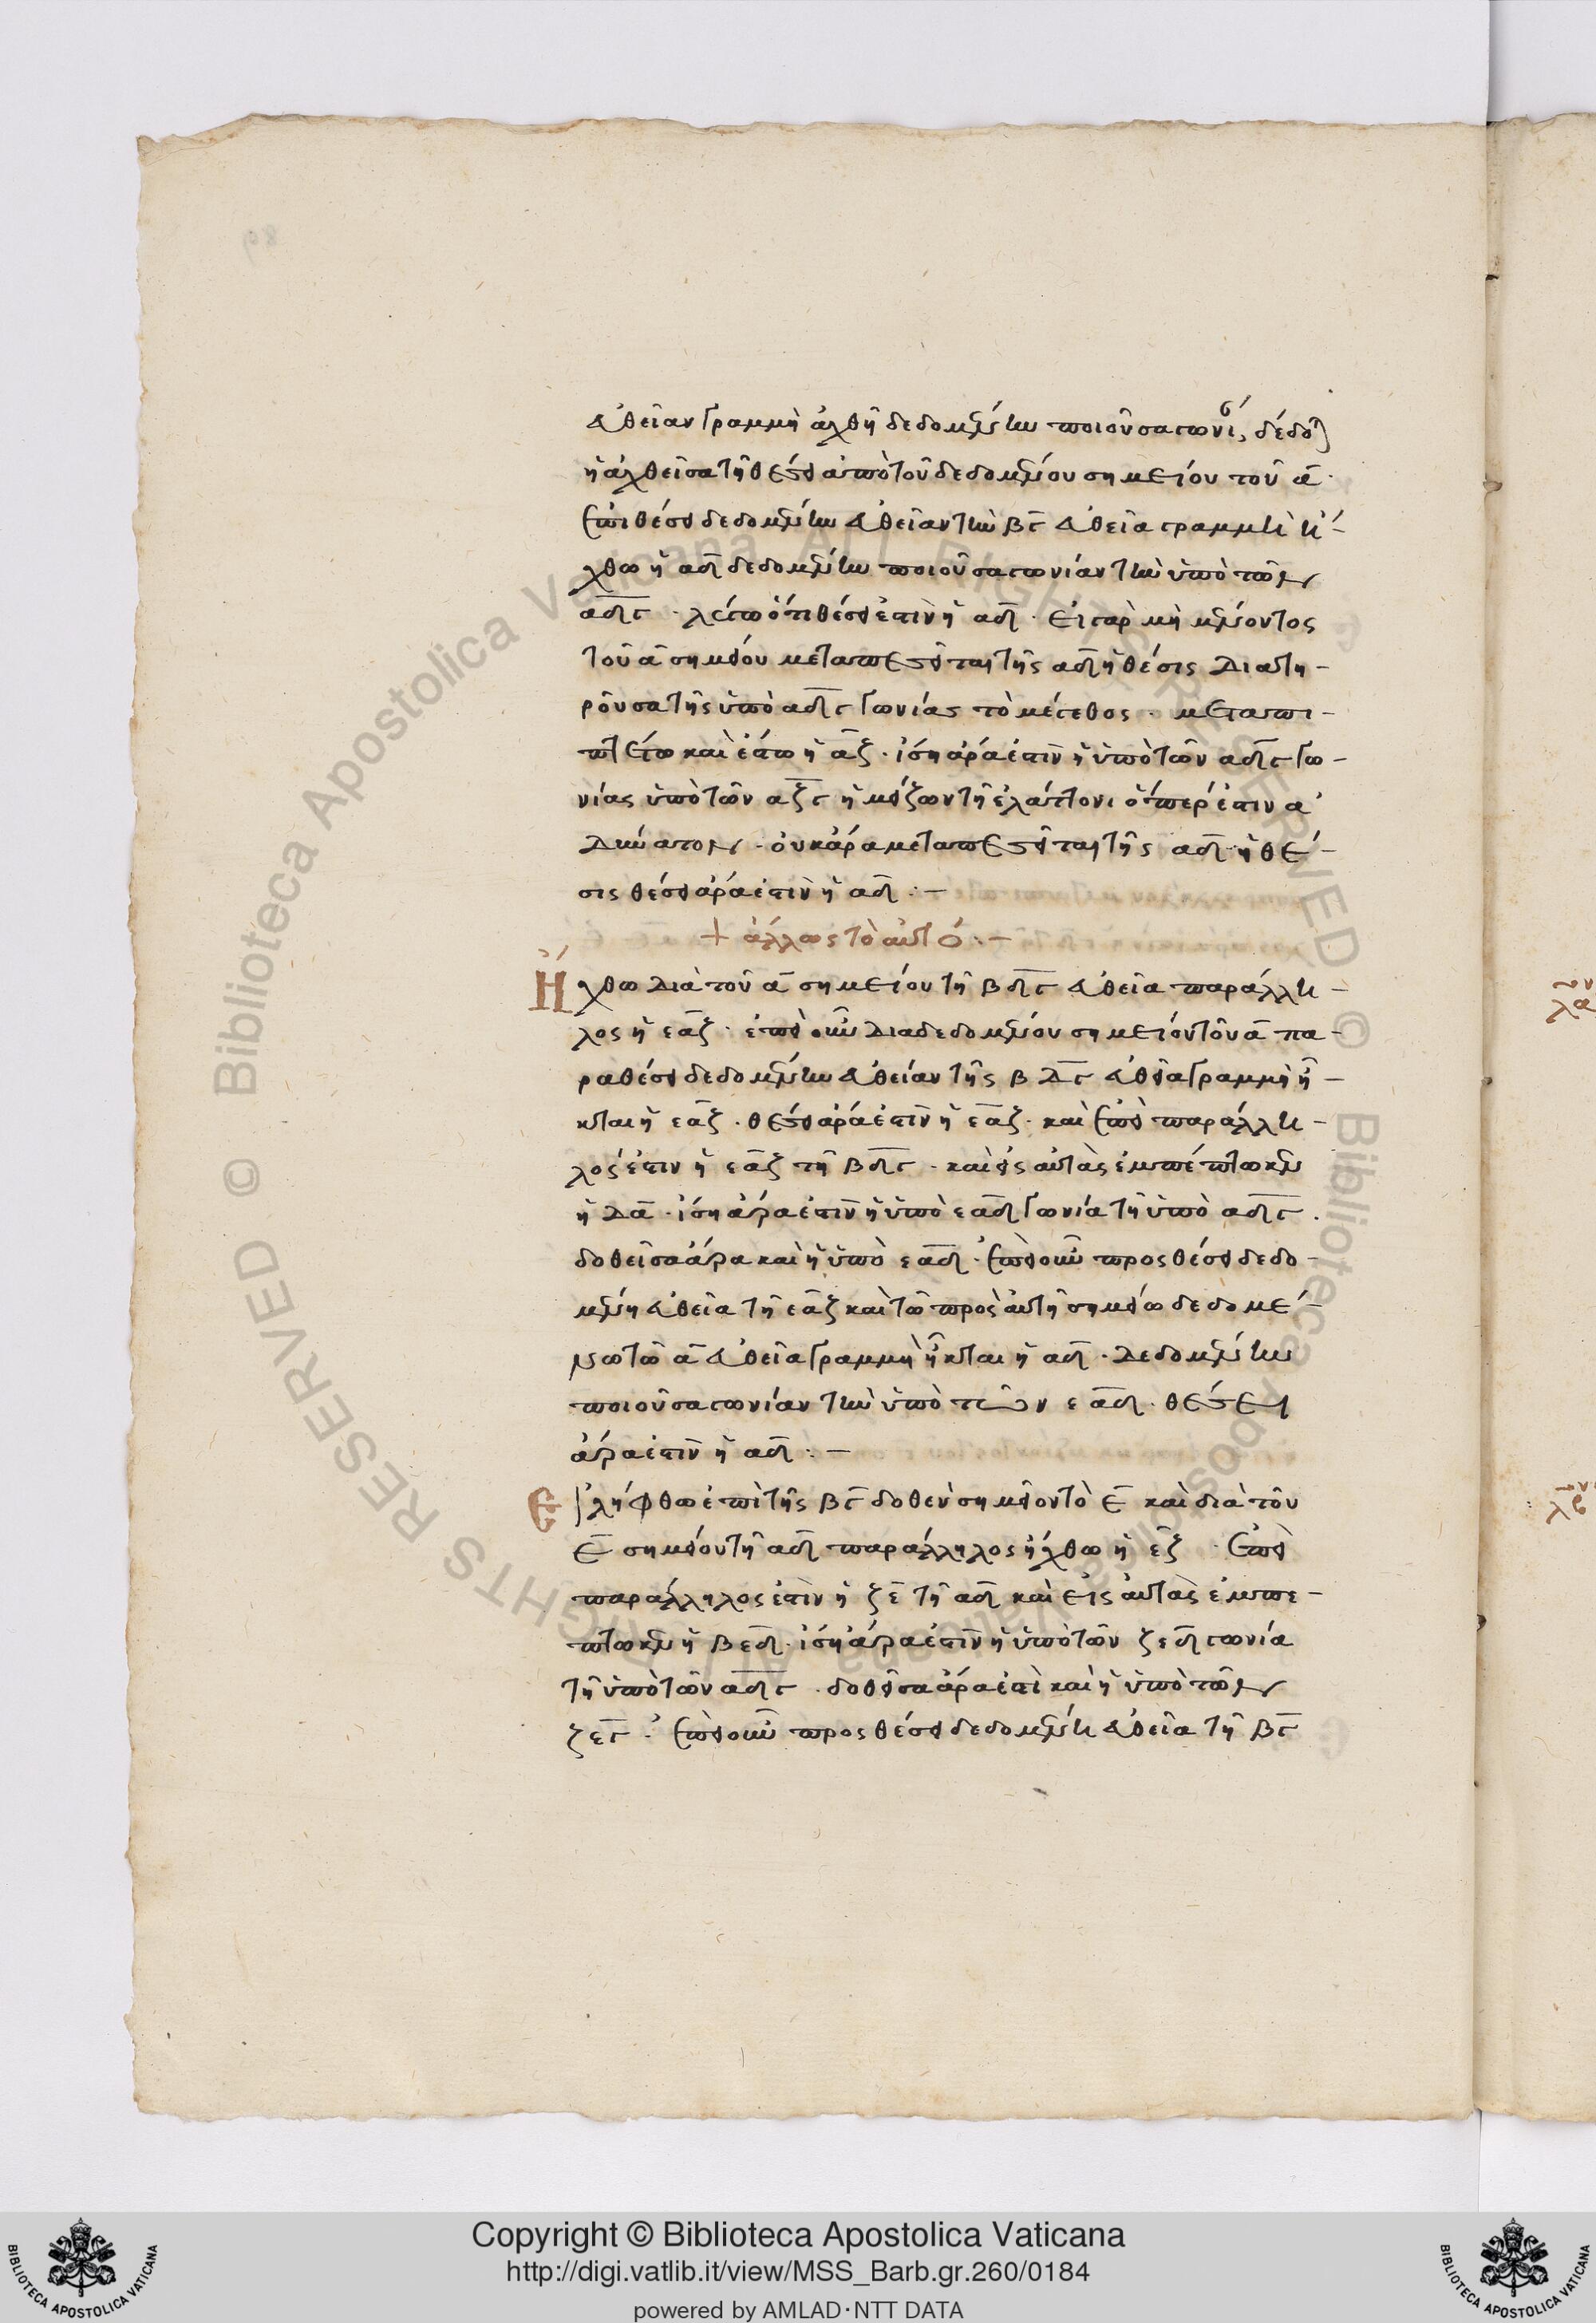 εὐθεῖαν γραμμὴ ἀχθῆ δεδομένην ποιοῦσα γωνίαν, δέδοται
ἡ ἀχθεῖσα τῆ θέσει ἀπὸ τοῦ δεδομένου σημείου τοῦ α.
ἐπὶ θέσει δεδομένην εὐθεῖαν τὴν βγ εὐθεῖα γραμμὴ ἤ-
χθω ἡ αδ δεδομένην ποιοῦσα γωνίαν τὴν ὑπὸ τῶν
αδγ. λέγω ὅτι θέσει ἐστὶν ἡ αδ. εἰ γὰρ μὴ μένοντος
τοῦ α σημείου μεταπεσεῖται τῆς αδ ἡ θέσις διατη-
ροῦσα τῆς ὑπὸ αδγ γωνίας τὸ μέγεθος. μεταπι-
πτέτω καὶ ἔστω ἡ αζ. ἴση ἄρα ἐστὶν ἡ ὑπὸ τῶν αδγ γω-
νίας ὑπὸ τῶν αζγ ἡ μείζων τῆ ἐλάττονι ὅπερ ἐστιν α-
δύνατον. οὐκ ἄρα μεταπεσεῖται τῆς αδ ἡ θέ-
σις θέσει ἄρα ἐστὶν ἡ αδ :-
+ ἄλλως τὸ αὐτό :-
Ἤχθω διὰ τοῦ α σημείου τῆ βδγ εὐθεῖα παράλλη-
λος ἡ εαζ. ἐπεὶ οὖν διὰ δεδομένου σημείου τοῦ α πα-
ρὰ θέσει δεδομένην εὐθείαν τῆς βδγ εὐθεῖα γραμμὴ ἦ-
κται ἡ εαζ. θέσει ἄρα ἐστὶν ἡ εαζ. καὶ ἐπεὶ παράλλη-
λος ἐστιν ἡ εαζ τῆ βδγ. καὶ εἰς αὐτὰς ἐμπέπτωκεν
ἡ δα. ἴση ἄρα ἐστὶν ἡ ὑπὸ εαδ γωνία τῆ ὑπὸ αδγ.
δοθεῖσα ἄρα καὶ ἡ ὑπὸ εαδ. ἐπεὶ οὖν πρὸς θέσει δεδο-
μένη εὐθεῖα τῆ εαζ καὶ τῶ πρὸς αὐτῆ σημείω δεδομέ-
νω τῶ α εὐθεῖα γραμμὴ ἦκται ἡ αδ. δεδομένην
ποιοῦσα γωνίαν τὴν ὑπὸ τῶν εαδ. θέσει
ἄρα ἐστὶν ἡ αδ :-
Εἰλήφθω ἐπὶ τῆς βγ δοθεν σημεῖον τὸ ε καὶ διὰ τοῦ
ε σημείου τῆ αδ παράλληλος ἤχθω ἡ εζ. ἐπεὶ
παράλληλος ἐστὶν ἡ ζε τῆ αδ καὶ εἰς αὐτὰς ἐμπέ-
πτωκεν ἡ βεδ. ἴση ἄρα ἐστὶν ἡ ὑπὸ τῶν ζεδ γωνία
τῆ ὑπὸ τῶν αδγ. δοθεῖσα ἄρα ἐστὶ καὶ ἡ ὑπὸ τῶν
ζεγ. ἐπεὶ οὖν πρὸς θέσει δεδομένη εὐθεία τῆ βγ
Copyright © Biblioteca Apostolica Vaticana
http://digi.vatlib.it/view/MSS_Barb.gr.260/0184
powered by AMLAD·NTT DATA